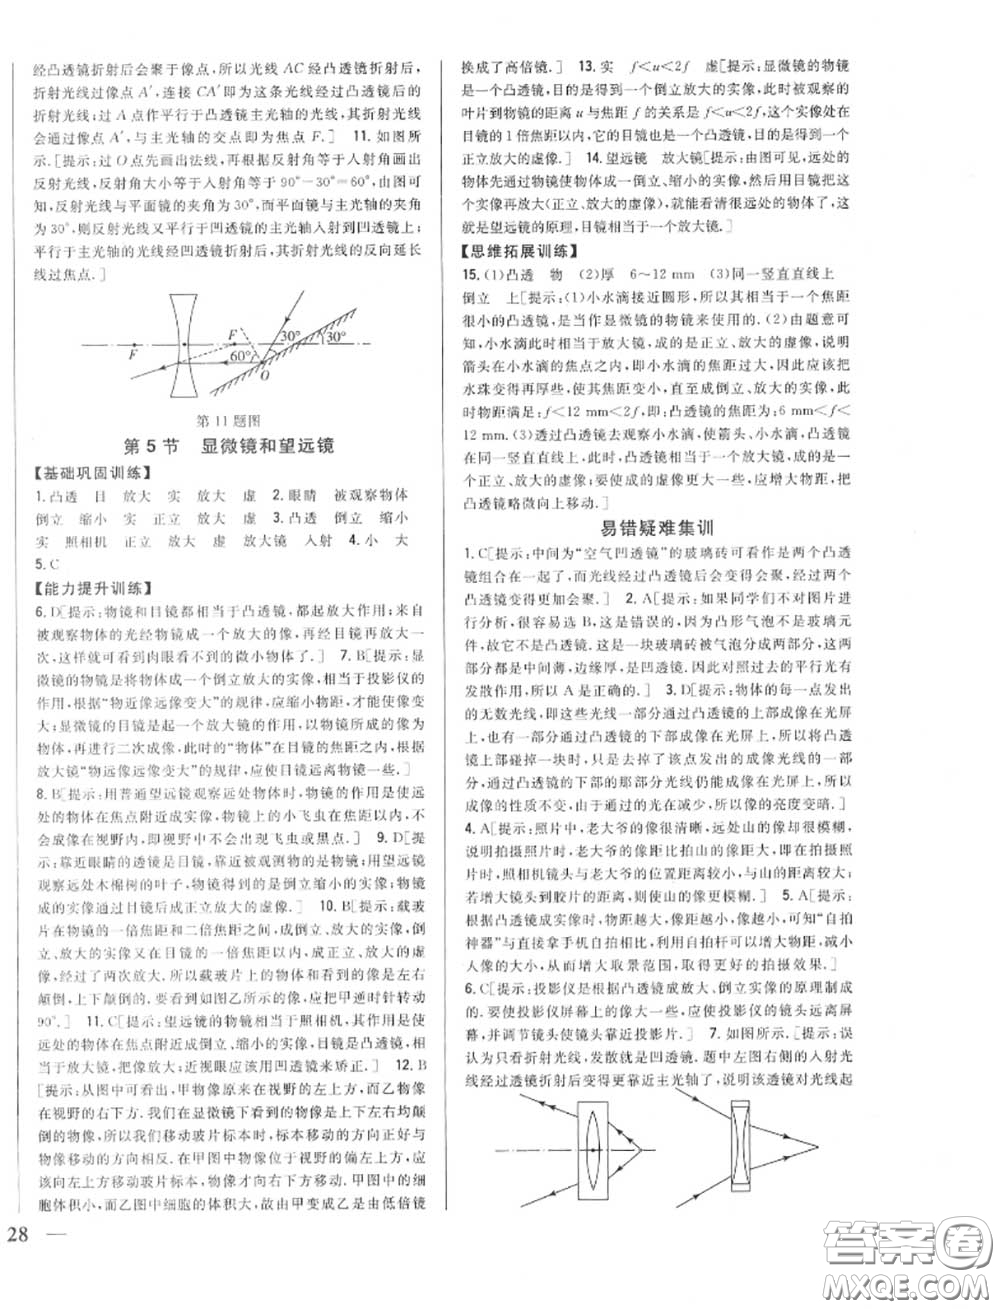 经凸透镜折射后会聚于像点,所以光线AC经凸透镜折射后,
折射光线过像点A′,连接CA′即为这条光线经凸透镜后的
折射光线;过A点作平行于凸透镜主光轴的光线,其折射光线
会通过像点A′,与主光轴的交点即为焦点F.] 11. 如图所
示.[提示:过O点先画出法线,再根据反射角等于入射角画出
反射光线,反射角大小等于入射角等于90°-30°=60°,由图可
知,反射光线与平面镜的夹角为30°,而平面镜与主光轴的夹角
为30°,则反射光线又平行于凹透镜的主光轴入射到凹透镜上;
平行于主光轴的光线经凹透镜折射后,其折射光线的反向延长
线过焦点.]
F F 60° 30° 30° O
第11题图
第5节 显微镜和望远镜
【基础巩固训练】
1.凸透 目 放大 实 放大 虚 2.眼睛 被观察物体
倒立 缩小 实 正立 放大 虚 3.凸透 倒立 缩小
实 照相机 正立 放大 虚 放大镜 入射 4.小 大
5.C
【能力提升训练】
6.D[提示:物镜和目镜都相当于凸透镜,都起放大作用;来自
被观察物体的光经物镜成一个放大的像,再经目镜再放大一
次,这样就可看到肉眼看不到的微小物体了.] 7.B[提示:显
微镜的物镜是将物体成一个倒立放大的实像,相当于投影仪的
作用,根据“物近像远像变大”的规律,应缩小物距,才能使像变
大;显微镜的目镜是起一个放大镜的作用,以物镜所成的像为
物体,再进行二次成像,此时的“物体”在目镜的焦距之内,根
据放大镜“物远像远像变大”的规律,应使目镜离物镜远一些.]
8.B[提示:用普通望远镜观察远处物体时,物镜的作用是使远
处的物体在焦点附近成实像,物镜上的小飞虫在如此近的距离下,
不会成像在视野内,即视野中不会出现飞虫或黑点.] 9.D[提
示:靠近眼睛的透镜是目镜,靠近被观测物的是物镜;用望远镜
观察远处木棉树的叶子,物镜得到的是倒立缩小的实像;物镜
成的实像通过目镜后成正立放大的虚像.] 10.B[提示:载玻
片在物镜的一倍焦距和二倍焦距之间,成倒立、放大的实像,倒
立、放大的实像又在目镜的一倍焦距以内,成正立、放大的虚
像,经过了两次放大.所以载玻片上的物体和看到的像是左右
颠倒、上下颠倒的.要看到如图乙所示的像,应把甲逆时针转动
90°.] 11.C[提示:望远镜的物镜相当于照相机,其作用是使
远处的物体在焦点附近成倒立、缩小的实像,目镜是凸透镜,相
当于放大镜,把像放大;近视眼应该用凹透镜来矫正.] 12.B
[提示:从图中可看出,甲物像原来在视野的左下方,而乙物像
在视野的右下方.我们在显微镜下看到的物像是上下左右均颠
倒的物像,所以我们移动玻片标本时,标本移动的方向正好与
物像移动的方向相反.在甲图中物像位于视野的偏左上方,应
该向左上方移动玻片标本,物像才能移到视野正中.甲图中的细
胞体积小,而乙图中细胞的体积大,由甲变成乙是由低倍镜
28
换成了高倍镜.] 13.实 f<u<2f 虚[提示:显微镜的物镜
是一个凸透镜,目的是得到一个倒立放大的实像,此时被观察的
叶片到物镜的距离u与焦距f的关系是f<u<2f,这个实像处在
目镜的1倍焦距以内,它的目镜也是一个凸透镜,目的是得到一个
正立放大的虚像.] 14.望远镜 放大镜[提示:由图可见,远处的
物体先通过物镜使物体成一倒立、缩小的实像,然后用目镜把这一
实像再放大(正立、放大的虚像),就能看清很远处的物体了,这
就是望远镜的原理,目镜相当于一个放大镜.]
【思维拓展训练】
15.(1)凸透 物 (2)厚 6~12 mm (3)同一竖直直线上
倒立 上[提示:(1)小水滴接近圆形,所以其相当于一个焦距
很小的凸透镜,是当作显微镜的物镜来使用的.(2)由题意可
知,小水滴此时相当于放大镜,成的是正立、放大的虚像,说明
箭头在小水滴的焦点之内,即小水滴的焦距过大,因此应该把
水珠变得再厚些,使其焦距变小,直至成倒立、放大的实像,此
时物距满足:f<12 mm<2f,即:凸透镜的焦距为:6 mm<f<
12 mm.(3)透过凸透镜去观察小水滴,使箭头、小水滴、凸透镜
在同一竖直直线上,所以看到的是小水滴所成的像;此时成正
立、放大的虚像,要使成的虚像更大一些,应增大物距,把
凸透镜略微向上移动.]
易错疑难集训
1.C[提示:中间为“空气凹透镜”的玻璃砖可看作是两个凸透
镜组合在一起了,而光线经过凸透镜后会变得会聚,经过两个
凸透镜变得更加会聚.] 2.A[提示:如果同学们不对图片进
行分析,很容易选B,这是错误的.因为凸形气泡不是玻璃元
件,故它不是凸透镜.这是一块玻璃砖被气泡分成两部分,这两
部分都是中间薄,边缘厚,是凹透镜.因此对照过去的平行光有
有发散作用,所以A是正确的.] 3.D[提示:物体的每一点发出
的无数光线,即这些光线一部分通过凸透镜的上部成像在光屏
上,也可以是一部分通过凸透镜的下部成像在光屏上,当凸透
镜上部碰掉一块时,只是去掉了该点发出的成像光线的一部
分,通过凸透镜的下部的那部分光线仍能成像在光屏上,所以
成像的性质不变,由于通过的光在减少,所以像的亮度变暗.]
4.A[提示:照片中,老大爷的像很清晰,远处山的像却很模糊,
说明拍摄照片时,老大爷的像距比拍山的像距大一些;拍摄照
片时,照相机镜头与老大爷的位置距离较小,与山的距离较大;
若增大镜头到胶片的距离,则使山的像更模糊.] 5.A[提示:
根据凸透镜成实像时,物距越大,像距越小,像越小,可知“自拍
神器”与直接拿手机自拍相比,利用自拍杆可以增大物距,减小
人像的大小,从而增大取景范围,取得更好的拍摄效果.]
6.C[提示:投影仪是根据凸透镜成放大、倒立实像的原理制成
的.要使投影仪屏幕上的像大一些,应使投影仪的镜头远离屏
幕,并调节镜头使镜头靠近投影片.] 7.如图所示.[提示:误
认为只看折射光线,发散就是凹透镜.题中左图右侧的入射光
线经过透镜折射后变得更靠近主光轴了,说明该透镜对光线起
答案圈
MXQE.COM